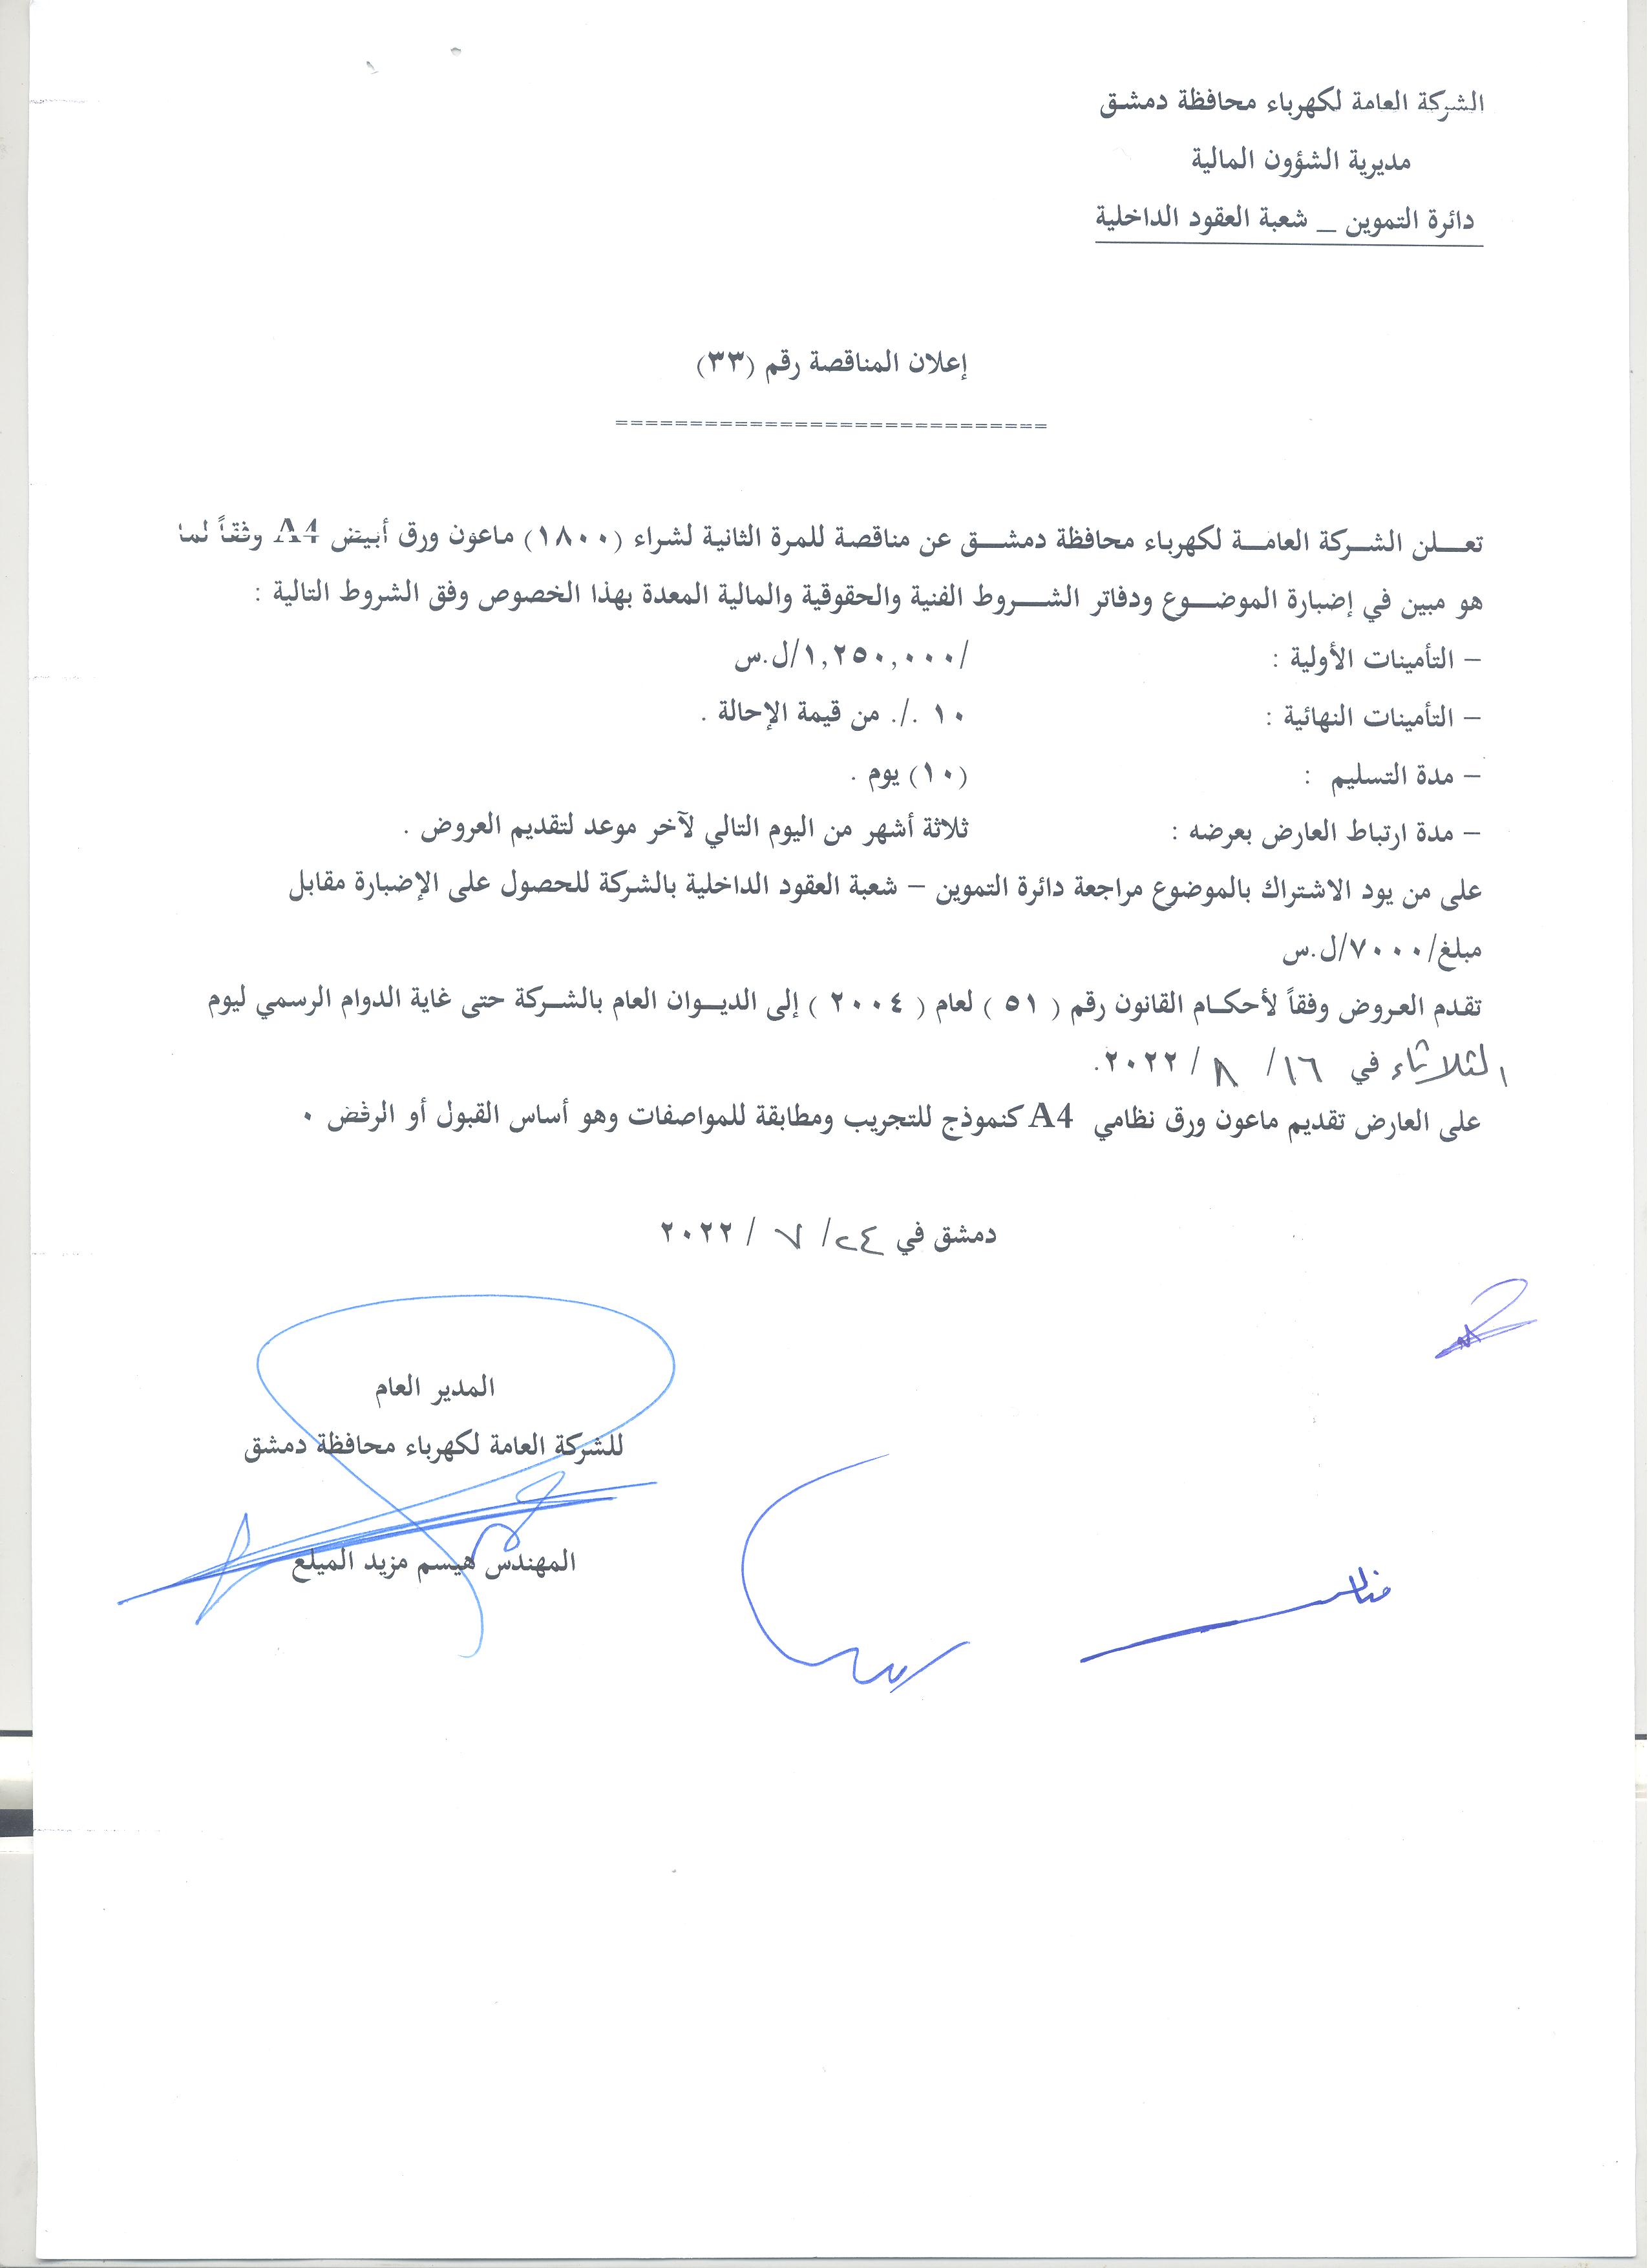 الشركة العامة لكهرباء محافظة دمشق
مديرية الشؤون المالية
دائرة التموين _ شعبة العقود الداخلية
إعلان المناقصة رقم (٣٣)
=============================
تعـــلن الشــركة العامــة لكهرباء محافظة دمشــق عن مناقصة للمرة الثانية لشراء (١٨٠٠) ماعون ورق أبيض A4 وفقاً لما
هو مبين في إضبارة الموضـــوع ودفاتر الشـــروط الفنية والحقوقية والمالية المعدة بهذا الخصوص وفق الشروط التالية :
– التأمينات الأولية : /١,٢٥٠,٠٠٠/ل.س
– التأمينات النهائية : ١٠ ./. من قيمة الإحالة .
– مدة التسليم : (١٠) يوم .
– مدة ارتباط العارض بعرضه : ثلاثة أشهر من اليوم التالي لآخر موعد لتقديم العروض .
على من يود الاشتراك بالموضوع مراجعة دائرة التموين – شعبة العقود الداخلية بالشركة للحصول على الإضبارة مقابل
مبلغ/٧٠٠٠/ل.س
تقدم العروض وفقاً لأحكـام القانون رقم ( ٥١ ) لعام ( ٢٠٠٤ ) إلى الديــوان العام بالشــركة حتى غاية الدوام الرسمي ليوم
الثلاثاء في ١٦ / ٨ / ٢٠٢٢.
على العارض تقديم ماعون ورق نظامي A4 كنموذج للتجريب ومطابقة للمواصفات وهو أساس القبول أو الرفض ٠
دمشق في ٢٤ / ٧ / ٢٠٢٢
المدير العام
للشركة العامة لكهرباء محافظة دمشق
المهندس هيسم مزيد الميلع